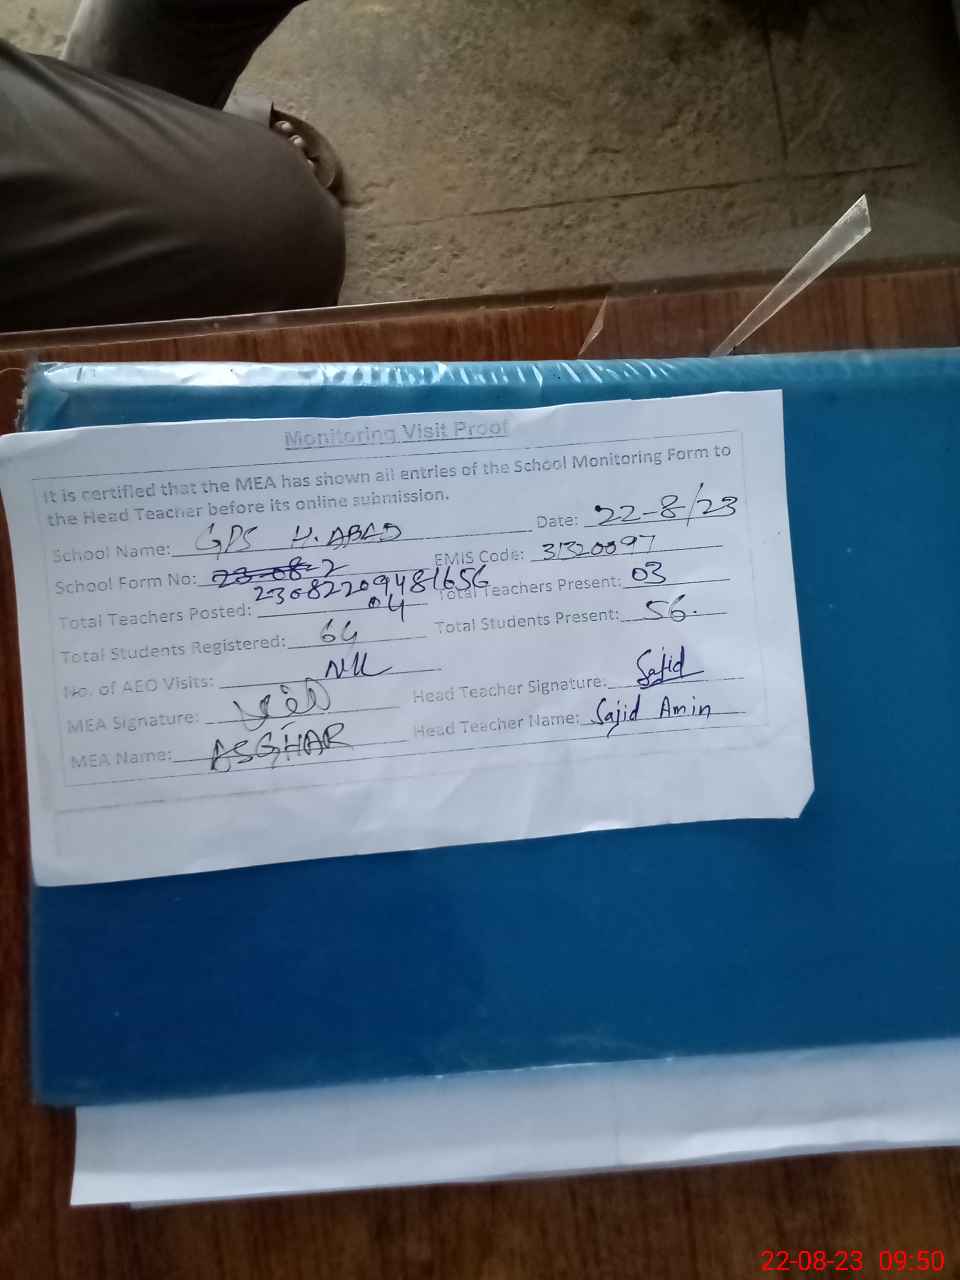 Monitoring Visit Proof
It is certified that the MEA has shown all entries of the School Monitoring Form to
the Head Teacher before its online submission.
School Name: GPS H. ABAD Date: 22-8/23
School Form No: 23-08-2 EMIS Code: 31320097
23082209481656
Total Teachers Posted: 04 Total Teachers Present: 03
Total Students Registered: 64 Total Students Present: 56.
No. of AEO Visits: Nil
MEA Signature: Head Teacher Signature: Sajid
MEA Name: ASGHAR Head Teacher Name: Sajid Amin
22-08-23 09:50